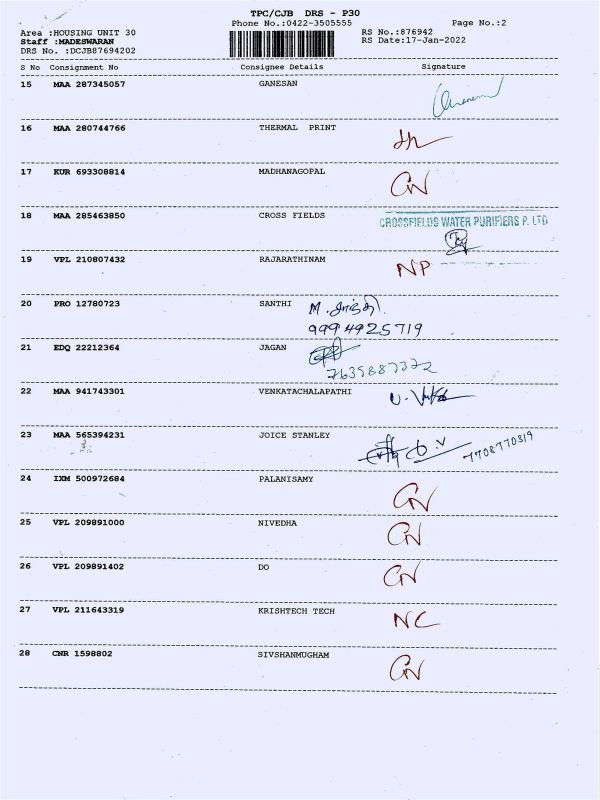 TPC/CJB DRS - P30
Phone No.:0422-3505555
Page No.:2
Area :HOUSING UNIT 30
RS No.:876942
Staff :MADESWARAN
RS Date:17-Jan-2022
DRS No. :DCJB87694202
S No Consignment No Consignee Details Signature
15 MAA 287345057 GANESAN
16 MAA 280744766 THERMAL PRINT
17 KUR 693308814 MADHANAGOPAL GN
18 MAA 285463850 CROSS FIELDS CROSSFIELDS WATER PURIFIERS P. LTD
19 VPL 210807432 RAJARATHINAM NP
20 PRO 12780723 SANTHI M. சாந்தி
9994925719
21 EDQ 22212364 JAGAN
22 MAA 941743301 VENKATACHALAPATHI
23 MAA 565394231 JOICE STANLEY 7708770319
24 IXM 500972684 PALANISAMY GN
25 VPL 209891000 NIVEDHA GN
26 VPL 209891402 DO GN
27 VPL 211643319 KRISHTECH TECH NC
28 CNR 1598802 SIVSHANMUGHAM GN